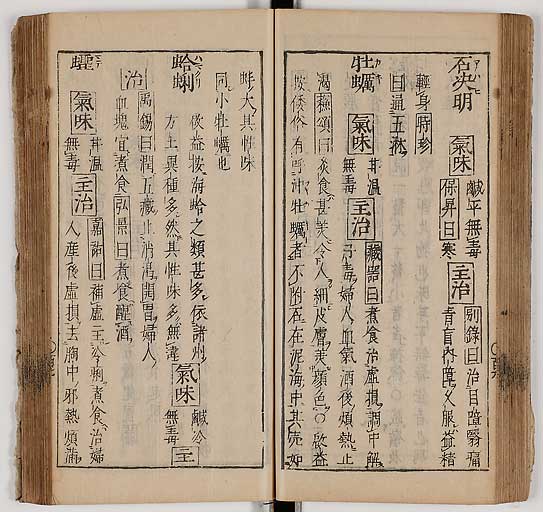 石決明 氣味 鹹平無毒 保昇曰寒 主治 別録曰治目障翳痛 青盲内障久服益精
輕身 時珍
曰通五淋
牡蠣 氣味 甘温 無毒 主治 藏器曰煮食治虛損調中解 丹毒婦人血氣酒後煩熱止
渇 蘇頌曰炙食甚美令人細皮膚美顔色○啟益
按倭俗有 牡蠣者不附石在泥海中其売如
蚌大其性味
同小牡蠣也
蛤蜊 啟益按海蛤之類甚多依諸州
方土異種多然其性味多無違 氣味 鹹冷 無毒 主
治 禹錫曰潤五藏止消渇開胃婦人
血塊宜煮食 弘景曰煮食醒酒
蟶 氣味 甘温 無毒 主治 嘉祐曰補虛主冷痢煮食治婦 人産後虛損去胸中邪熱煩満